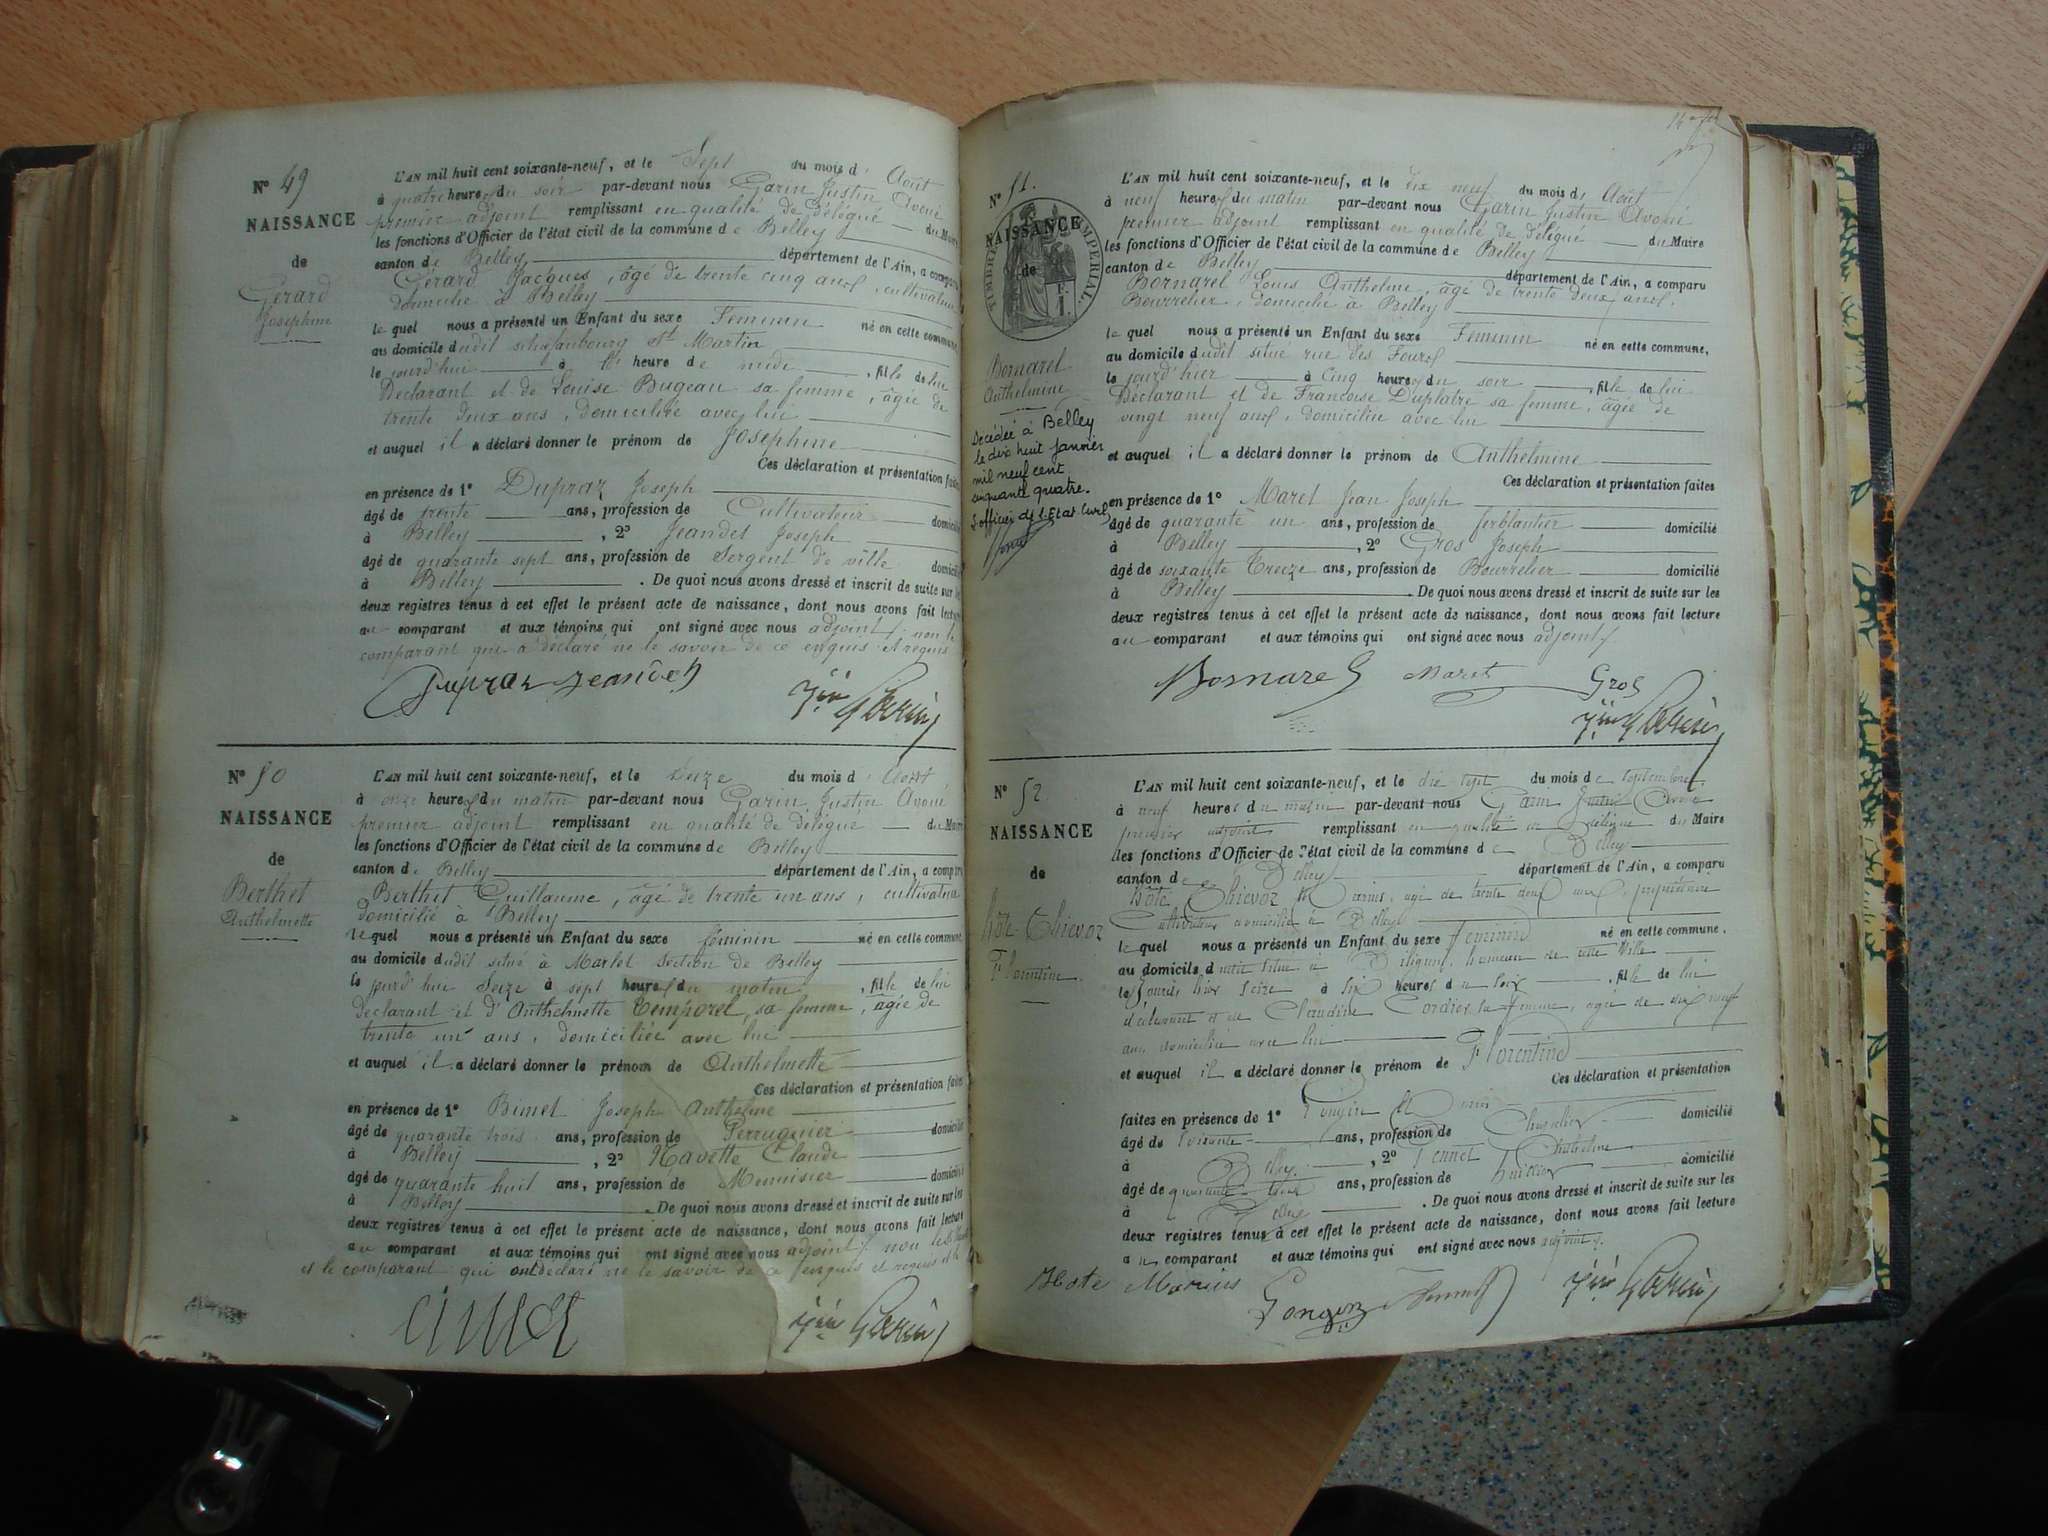 N° 49
NAISSANCE
de
Gérard
Joséphine
L'AN mil huit cent soixante-neuf, et le Sept du mois d' Août
à quatre heures du soir par-devant nous Garin Justin Avoué
premier adjoint remplissant en qualité de délégué du Maire
les fonctions d'Officier de l'état civil de la commune de Belley
canton de Belley département de l'Ain, a comparu
Gérard Jacques, âgé de trente cinq ans, cultivateur
domicilié à Belley
le quel nous a présenté un Enfant du sexe Féminin né en cette commune,
au domicile dudit faubourg St Martin
le jourd'hui à heure de , fille de lui
Déclarant et de Louise Bugeau sa femme, âgée de
trente deux ans, domiciliée avec lui
et auquel il a déclaré donner le prénom de Joséphine
Ces déclaration et présentation faites
en présence de 1° Dupraz Joseph
âgé de trente ans, profession de Cultivateur domicilié
à Belley , 2° Jeandet Joseph
âgé de quarante sept ans, profession de Sergent de ville domicilié
à Belley . De quoi nous avons dressé et inscrit de suite sur les
deux registres tenus à cet effet le présent acte de naissance, dont nous avons fait lecture
au comparant et aux témoins qui ont signé avec nous adjoint, non le
comparant qui a déclaré ne le savoir de ce enquis et requis
Dupraz Jeandet Garin
N° 50
NAISSANCE
de
Berthet
Anthelmette
L'AN mil huit cent soixante-neuf, et le Seize du mois d' Août
à onze heures du matin par-devant nous Garin Justin Avoué
premier adjoint remplissant en qualité de délégué du Maire
les fonctions d'Officier de l'état civil de la commune de Belley
canton de Belley département de l'Ain, a comparu
Berthet Guillaume, âgé de trente un ans, cultivateur
domicilié à Belley
le quel nous a présenté un Enfant du sexe féminin né en cette commune,
au domicile dudit situé à Section de Belley
le jourd'hui Seize à sept heures du matin , fille de lui
déclarant et d'Anthelmette Temporel, sa femme, âgée de
trente un ans, domiciliée avec lui
et auquel il a déclaré donner le prénom de Anthelmette
Ces déclaration et présentation faites
en présence de 1° Bimet Joseph Anthelme
âgé de quarante trois ans, profession de Perruquier domicilié
à Belley , 2° Navette Claude
âgé de quarante huit ans, profession de Menuisier domicilié
à Belley . De quoi nous avons dressé et inscrit de suite sur les
deux registres tenus à cet effet le présent acte de naissance, dont nous avons fait lecture
au comparant et aux témoins qui ont signé avec nous adjoint, non le
et le comparant qui ont déclaré ne le savoir de ce enquis et requis
Garin
N° 51.
NAISSANCE
de
TIMBRE IMPÉRIAL
Bornarel
Anthelmine
Décédée à Belley
le dix huit Janvier
mil neuf cent
cinquante quatre.
L'officier de l'Etat Civil
L'AN mil huit cent soixante-neuf, et le dix neuf du mois d' Août
à neuf heures du matin par-devant nous Garin Justin Avoué
premier adjoint remplissant en qualité de délégué du Maire
les fonctions d'Officier de l'état civil de la commune de Belley
canton de Belley département de l'Ain, a comparu
Bornarel Louis Anthelme, âgé de trente deux ans,
Bourrelier, domicilié à Belley
le quel nous a présenté un Enfant du sexe Féminin né en cette commune,
au domicile dudit situé rue des Fours
le jourd'hier à Cinq heures du soir , fille de lui
Déclarant et de Françoise Duplatre sa femme, âgée de
vingt neuf ans, domiciliée avec lui
et auquel il a déclaré donner le prénom de Anthelmine
Ces déclaration et présentation faites
en présence de 1° Maret Jean Joseph
âgé de quarante un ans, profession de ferblantier domicilié
à Belley , 2° Gros Joseph
âgé de soixante Treize ans, profession de Bourrelier domicilié
à Belley . De quoi nous avons dressé et inscrit de suite sur les
deux registres tenus à cet effet le présent acte de naissance, dont nous avons fait lecture
au comparant et aux témoins qui ont signé avec nous adjoint
Bornarel Maret Gros
Garin
N° 52
NAISSANCE
de
Hôte-Chievoz
Florentine
L'AN mil huit cent soixante-neuf, et le dix sept du mois de septembre
à neuf heures du matin par-devant nous Garin Justin Avoué
premier adjoint remplissant en qualité de délégué du Maire
les fonctions d'Officier de l'état civil de la commune de Belley
canton de Belley département de l'Ain, a comparu
Hôte Chievoz Marius, âgé de trente deux ans, propriétaire
Cultivateur domicilié à Belley
le quel nous a présenté un Enfant du sexe Féminin né en cette commune,
au domicile dudit situé à hameau de cette Ville
le jourd'hier seize à six heures du soir , fille de lui
déclarant et de Claudine Cordier sa femme, âgée de dix neuf
ans domiciliée avec lui
et auquel il a déclaré donner le prénom de Florentine
Ces déclaration et présentation
faites en présence de 1° Gongin domicilié
âgé de soixante ans, profession de
à Belley , 2° Anthelme
âgé de quarante ans, profession de huissier domicilié
à Belley . De quoi nous avons dressé et inscrit de suite sur les
deux registres tenus à cet effet le présent acte de naissance, dont nous avons fait lecture
au comparant et aux témoins qui ont signé avec nous adjoint.
Hote Marius Gongin Garin